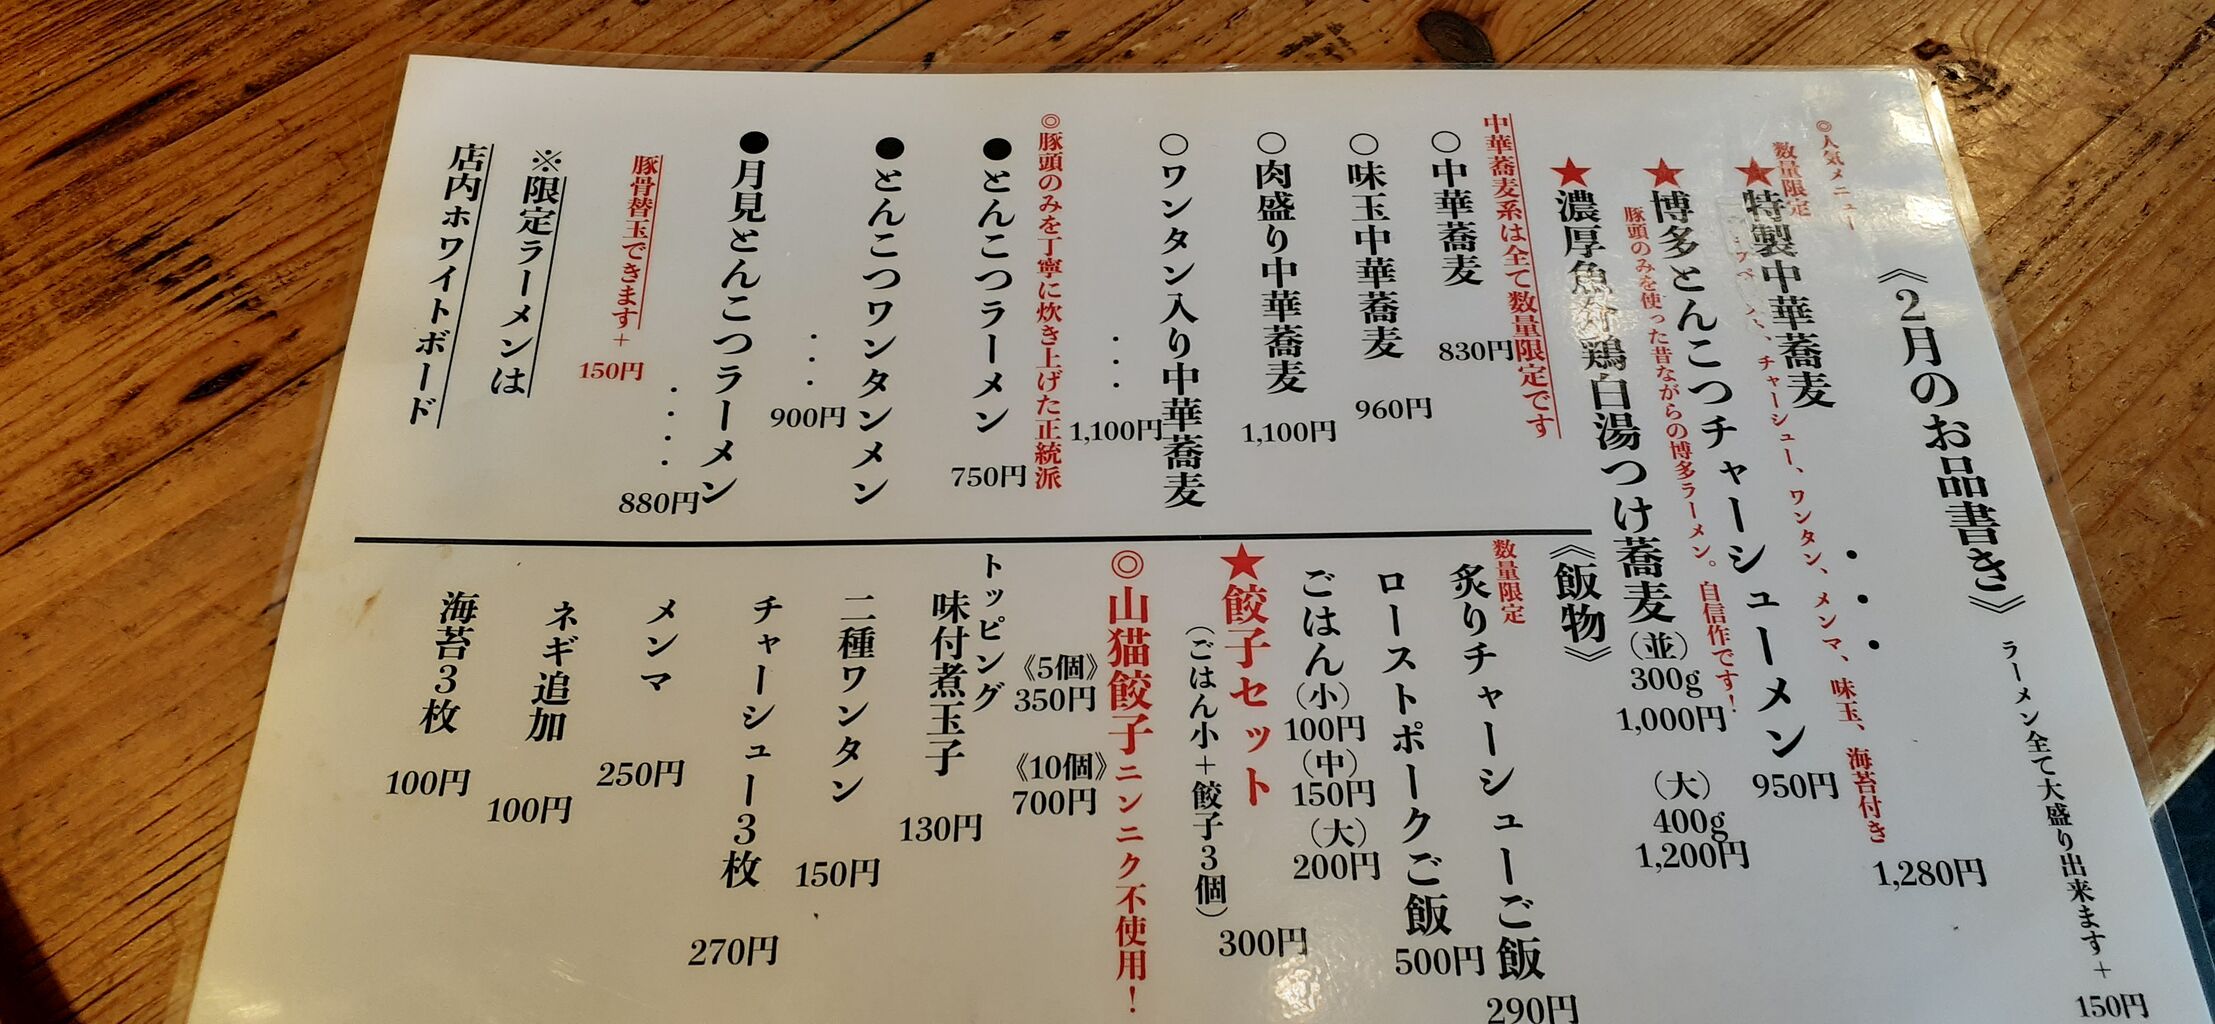 《2月のお品書き》
ラーメン全て大盛り出来ます+ 150円
◎人気メニュー
数量限定
★特製中華蕎麦 ・・・ 1,280円
チャーシュー、ワンタン、メンマ、味玉、海苔付き
★博多とんこつチャーシューメン 950円
豚頭のみを使った昔ながらの博多ラーメン。自信作です!
★濃厚魚介鶏白湯つけ蕎麦 (並) 300g 1,000円 (大) 400g 1,200円
中華蕎麦系は全て数量限定です
○中華蕎麦 830円
○味玉中華蕎麦 960円
○肉盛り中華蕎麦 1,100円
○ワンタン入り中華蕎麦 ・・・ 1,100円
◎豚頭のみを丁寧に炊き上げた正統派
●とんこつラーメン 750円
●とんこつワンタンメン ・・・ 900円
●月見とんこつラーメン ・・・・ 880円
豚骨替玉できます+ 150円
※限定ラーメンは
店内ホワイトボード
《飯物》
数量限定
炙りチャーシューご飯 290円
ローストポークご飯 500円
ごはん (小) 100円 (中) 150円 (大) 200円
★餃子セット
(ごはん小+餃子3個) 300円
◎山猫餃子ニンニク不使用!
《5個》 350円 《10個》 700円
トッピング
味付煮玉子 130円
二種ワンタン 150円
チャーシュー3枚 270円
メンマ 250円
ネギ追加 100円
海苔3枚 100円